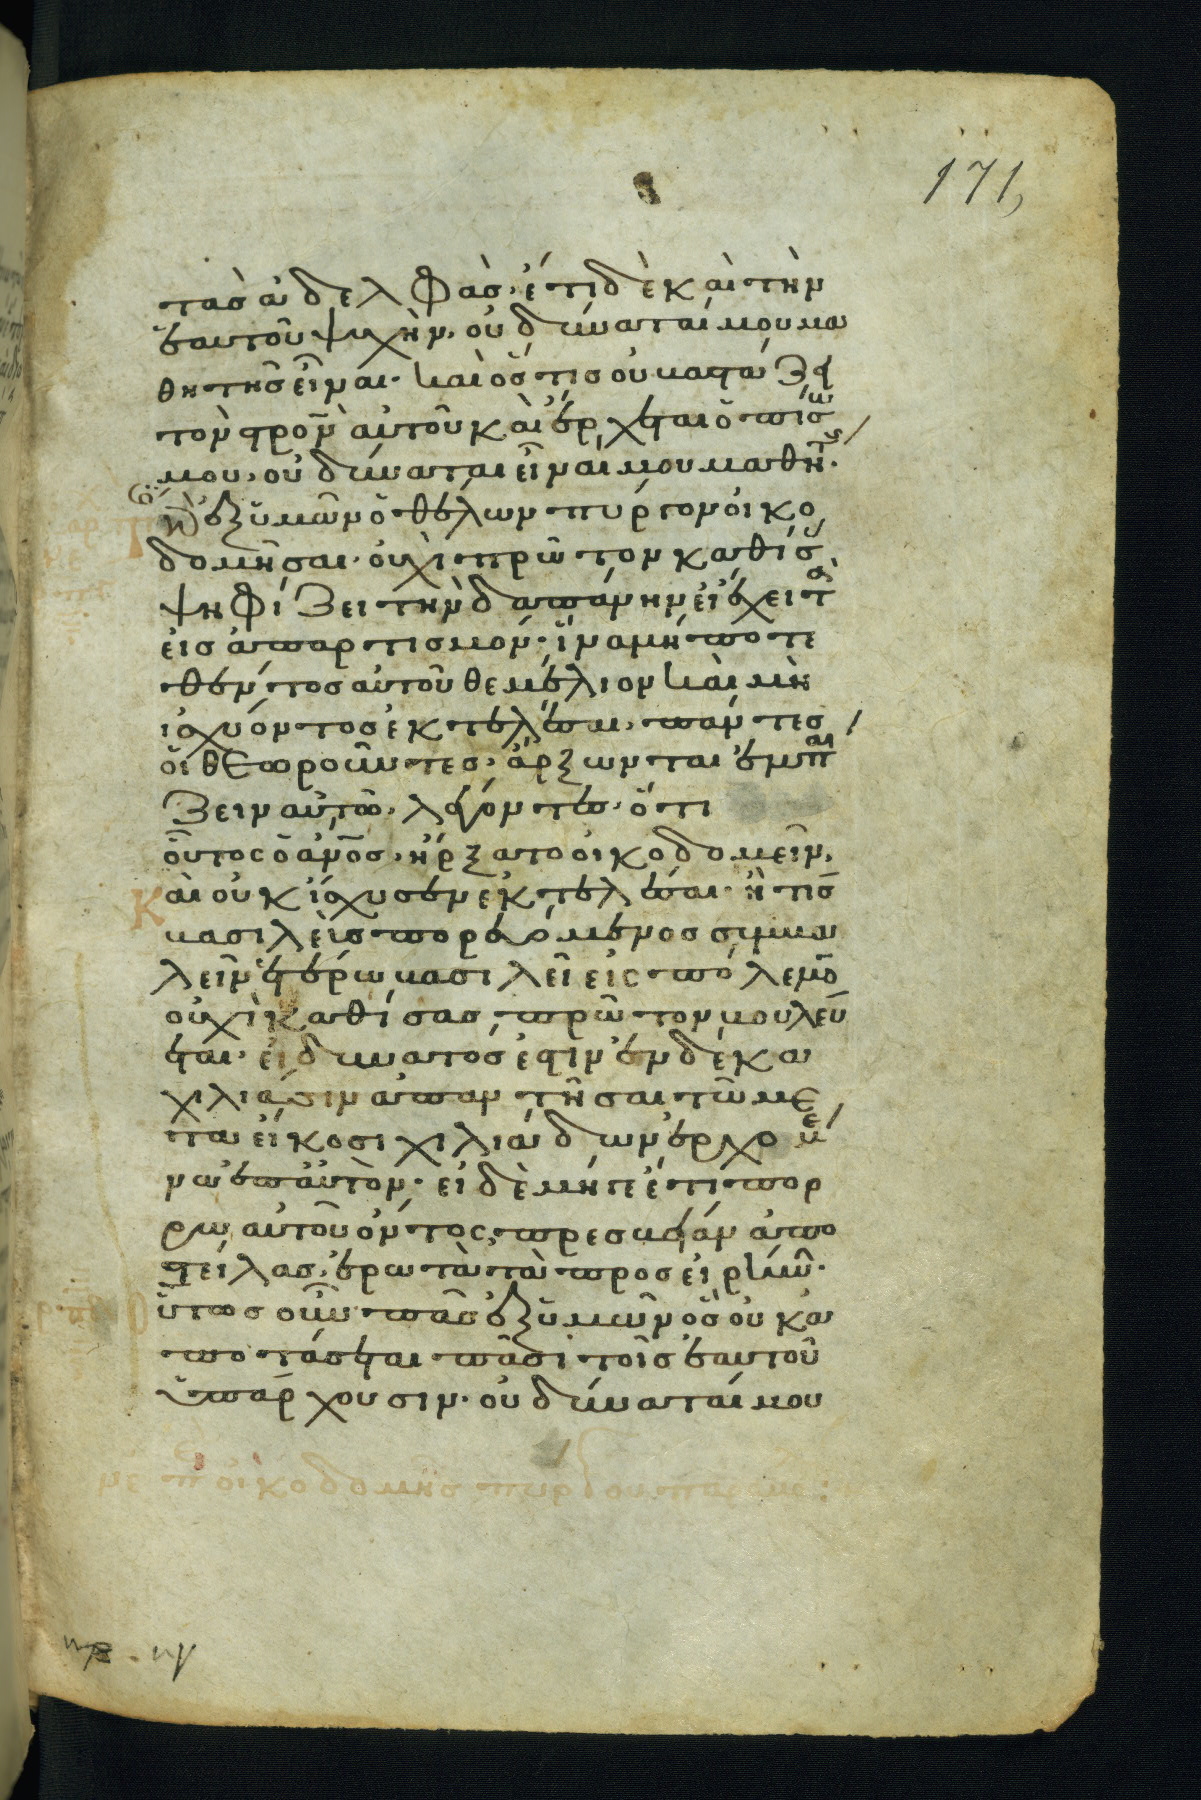 171
τὰσ ἀδελφὰσ· ἔτι δὲ κ αὶ τὴν
ἑαυτοῦ ψυχὴν· οὐ δύναταί μου μα
θητὴσ εἶναι· καὶ ὅστισ οὐ βαστάζει
τὸν στρον̅ αὐτοῦ κ αὶ ἔρχεται ὀπίσω
μου· οὐ δύναται εἶναί μου μαθητήσ·
ἐξ ὑμῶν ὁ θέλων πύργον οἰκο
δομῆσαι· οὐχὶ πρῶτον καθίσ
ψηφίζει τὴν δαπάνην εἰ ἔχει τὰ
εἰσ ἀπαρτισμόν· ἵνα μήποτε
θέντοσ αὐτοῦ θεμέλιον καὶ μὴ
ἰσχύοντοσ ἐκτελέσαι· πάντεσ
οἱ θεωροῦντεσ· ἄρξωνται ἐμπαί
ζειν αὐτῶ· λέγοντεσ· ὅτι
οὗτοσ ὁ ἀν̅οσ· ἤρξατο οἰκοδομεῖν·
Καὶ οὐκ ἴσχυσεν ἐκτελέσαι· ἢ τίσ
βασιλεὺσ πορευόμενοσ συμβα
λεῖν ἑτέρω βασιλεῖ εἰσ πόλεμο̅
οὐχὶ καθίσασ πρῶτον βουλεύ
εται· εἰ δυνατόσ ἐστιν ἐν δέκα
χιλιάσιν ἀπαντῆσαι τῶ με
τὰ εἴκοσι χιλιάδων ἐρχομέ
νω ἐπ αὐτὸν· εἰ δὲ μήγε ἔτι πορ
ρω αὐτοῦ ὄντοσ, πρεσβείαν ἀπο
στείλασ· ἐρωτᾶ τὰ προσ εἰρήνην·
Οὕτωσ οὖν πᾶσ ἐξ ὑμῶν ὃσ οὐκ ἀ
ποτάσσεται πᾶσι τοῖσ ἑαυτοῦ
ὑπάρχουσιν· οὐ δύναταί μου
οἰκοδομῆσ πυργου